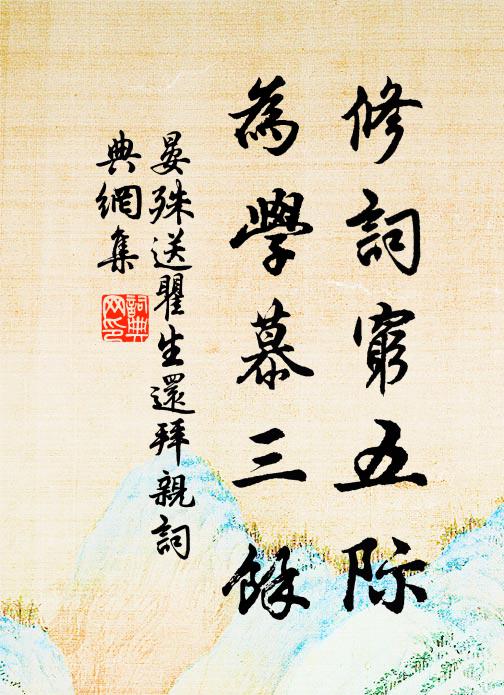 修詞窮五际
為學慕三餘
晏殊送瞿生還拜親詞
典網集
詞典网印